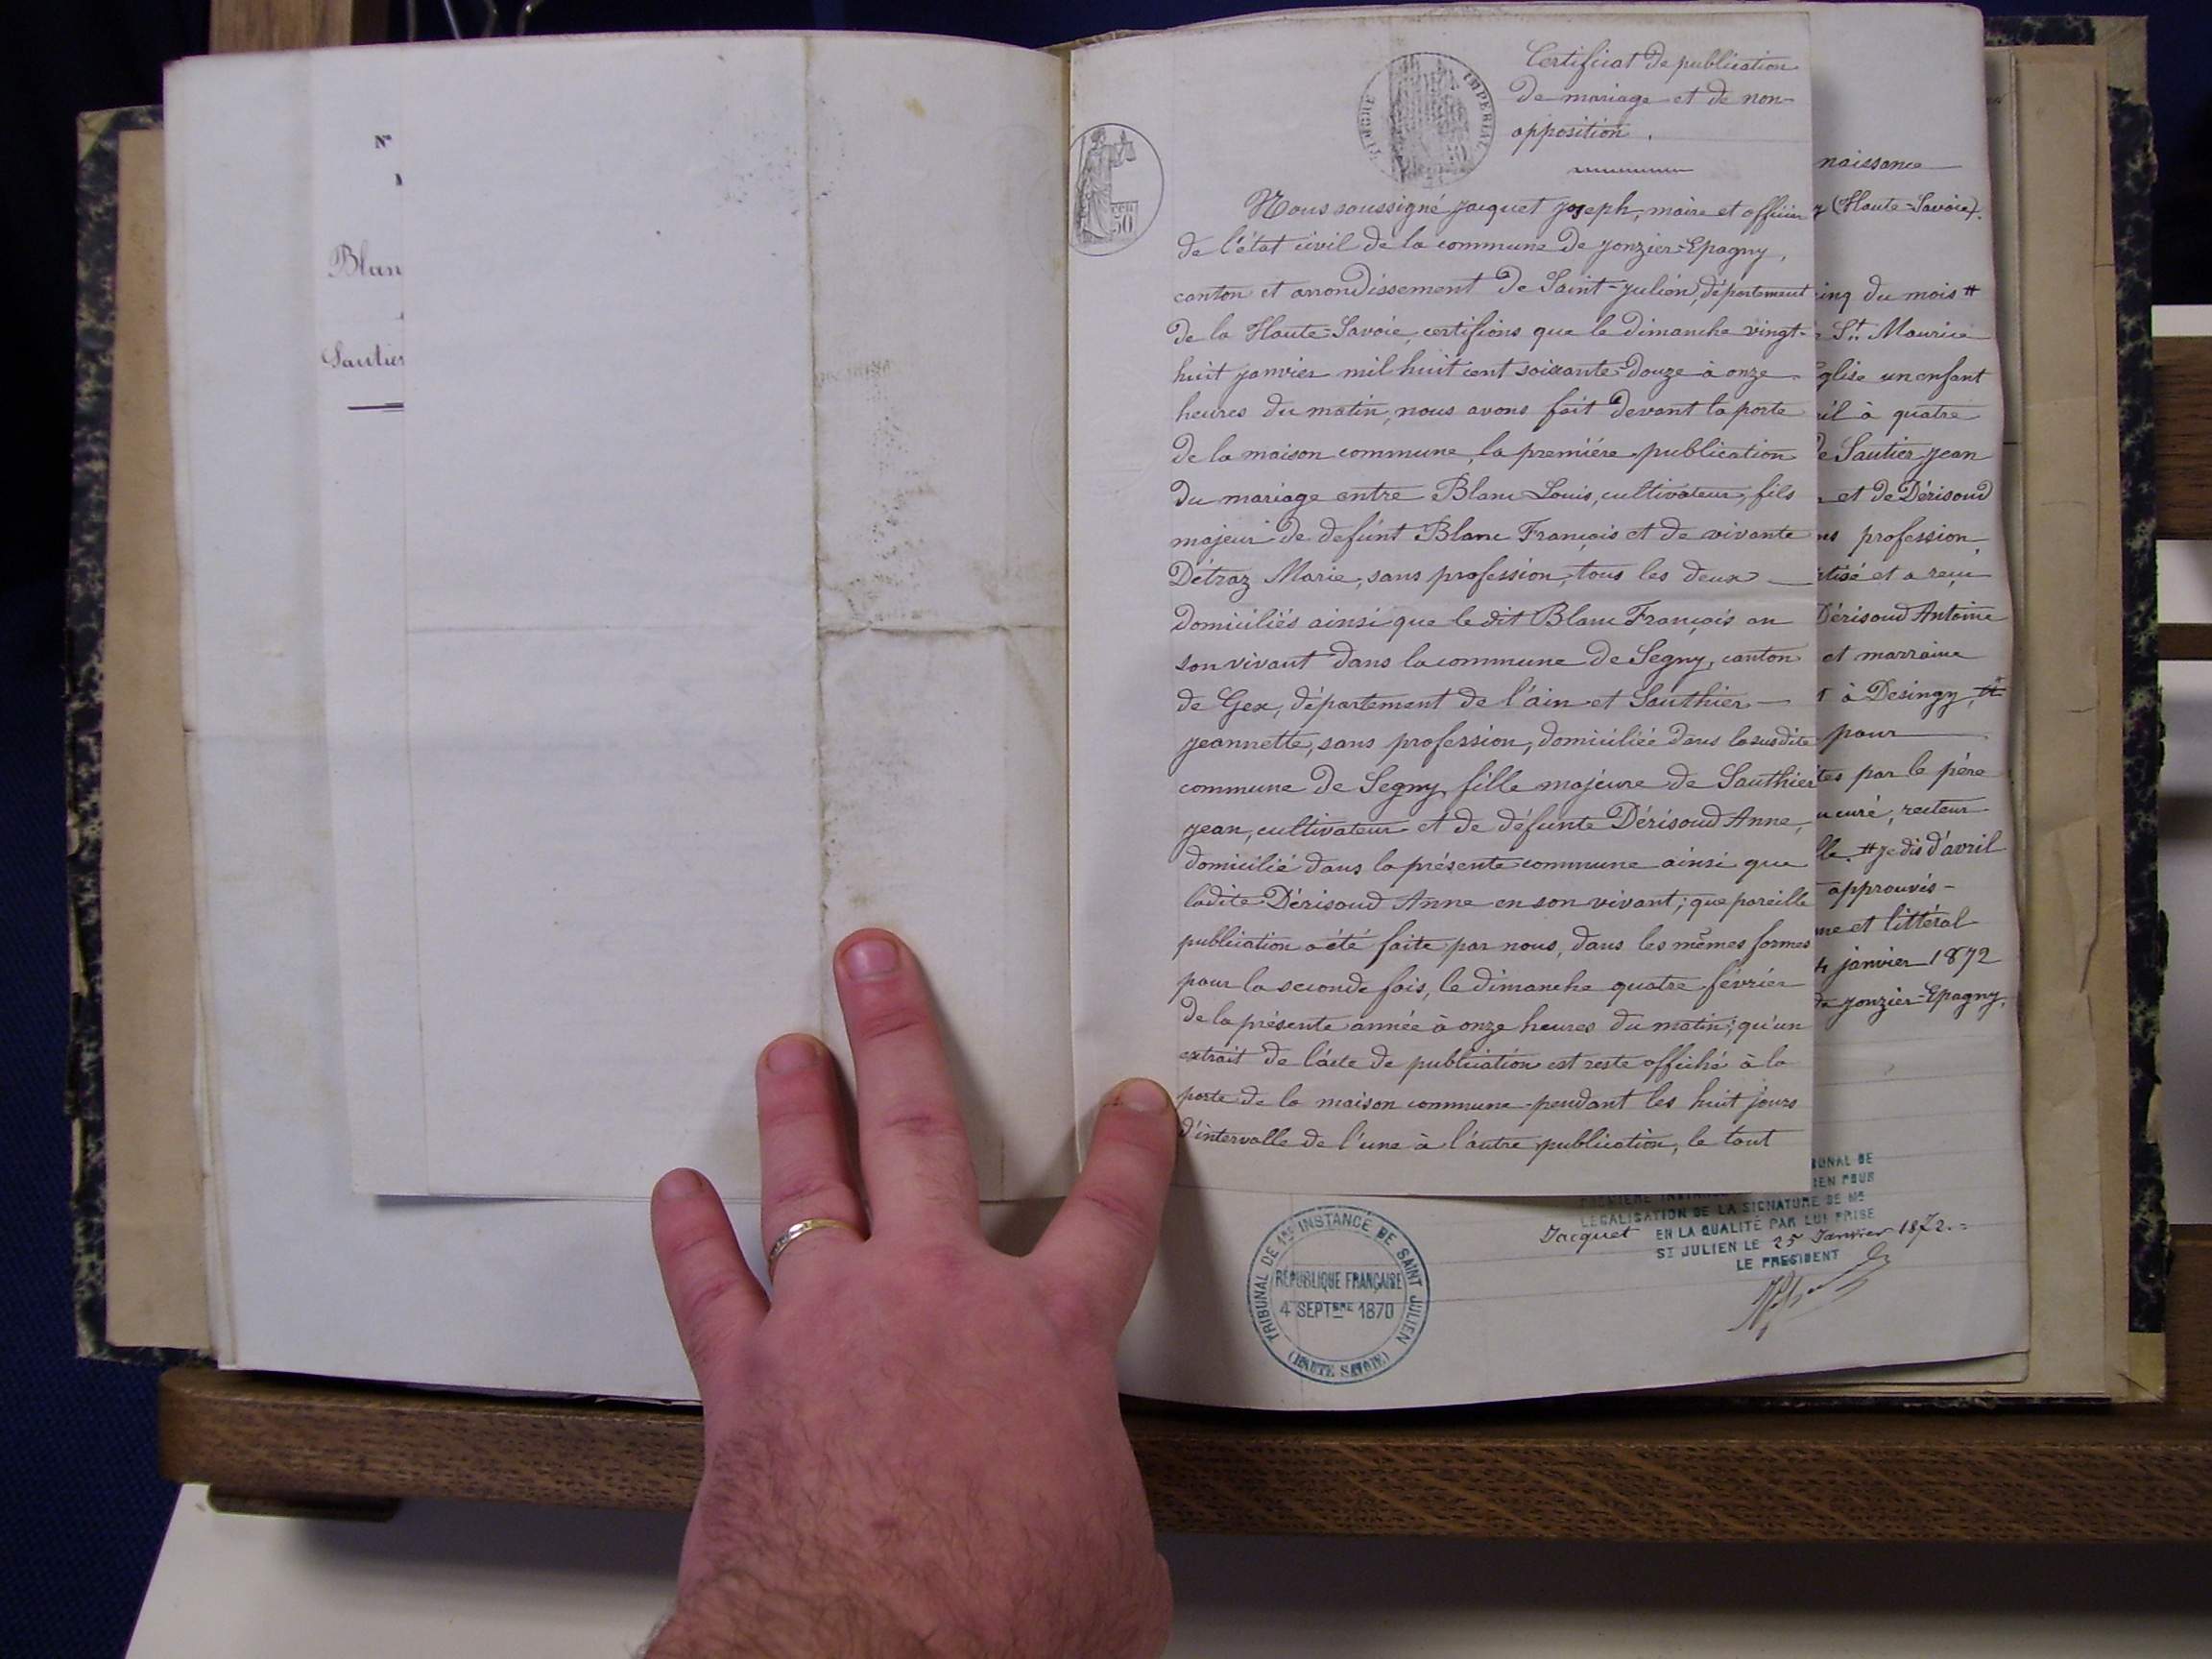 N°
Blan
Sautier
TIMBRE IMPERIAL
50 cen
50
Certificat de publication
de mariage et de non-
opposition.
Nous soussigné Jacquet Joseph, maire et officier
de l'état civil de la commune de Jonzier-Epagny,
canton et arrondissement de Saint-Julien, département
de la Haute-Savoie, certifions que le dimanche vingt-
huit janvier mil huit cent soixante-douze à onze
heures du matin, nous avons fait devant la porte
de la maison commune, la première publication
du mariage entre Blanc Louis, cultivateur, fils
majeur de defunt Blanc François et de vivante
Détraz Marie, sans profession, tous les deux
domiciliés ainsi que le dit Blanc François en
son vivant dans la commune de Segny, canton
de Gex, département de l'ain et Sauthier
Jeannette, sans profession, domiciliée dans la susdite
commune de Segny, fille majeure de Sauthier
Jean, cultivateur et de défunte Dérisoud Anne,
domicilié dans la présente commune ainsi que
ladite Dérisoud Anne en son vivant; que pareille
publication a été faite par nous, dans les mêmes formes
pour la seconde fois, le dimanche quatre février
de la présente année à onze heures du matin; qu'un
extrait de l'acte de publication est resté affiché à la
porte de la maison commune pendant les huit jours
d'intervalle de l'une à l'autre publication, le tout
naissance
y (Haute-Savoie).
inq du mois #
St. Maurice
glise un enfant
ril à quatre
de Sautier Jean
et de Dérisoud
ns profession,
tisé et a reçu
Dérisoud Antoine
et marraine
à Desingy,
pour
tes par le père
curé, recteur
lle. # je dis d'avril
approuvés
me et littéral
4 janvier 1872
de Jonzier-Epagny,
BUNAL DE
IEN POUR
PREMIERE INSTANCE
LEGALISATION DE LA SIGNATURE DE MR
Jacquet EN LA QUALITÉ PAR LUI PRISE
ST JULIEN LE 25 Janvier 1872.
LE PRESIDENT
TRIBUNAL DE 1RE INSTANCE DE SAINT JULIEN
RÉPUBLIQUE FRANÇAISE
4 SEPTBRE 1870
(HAUTE SAVOIE)